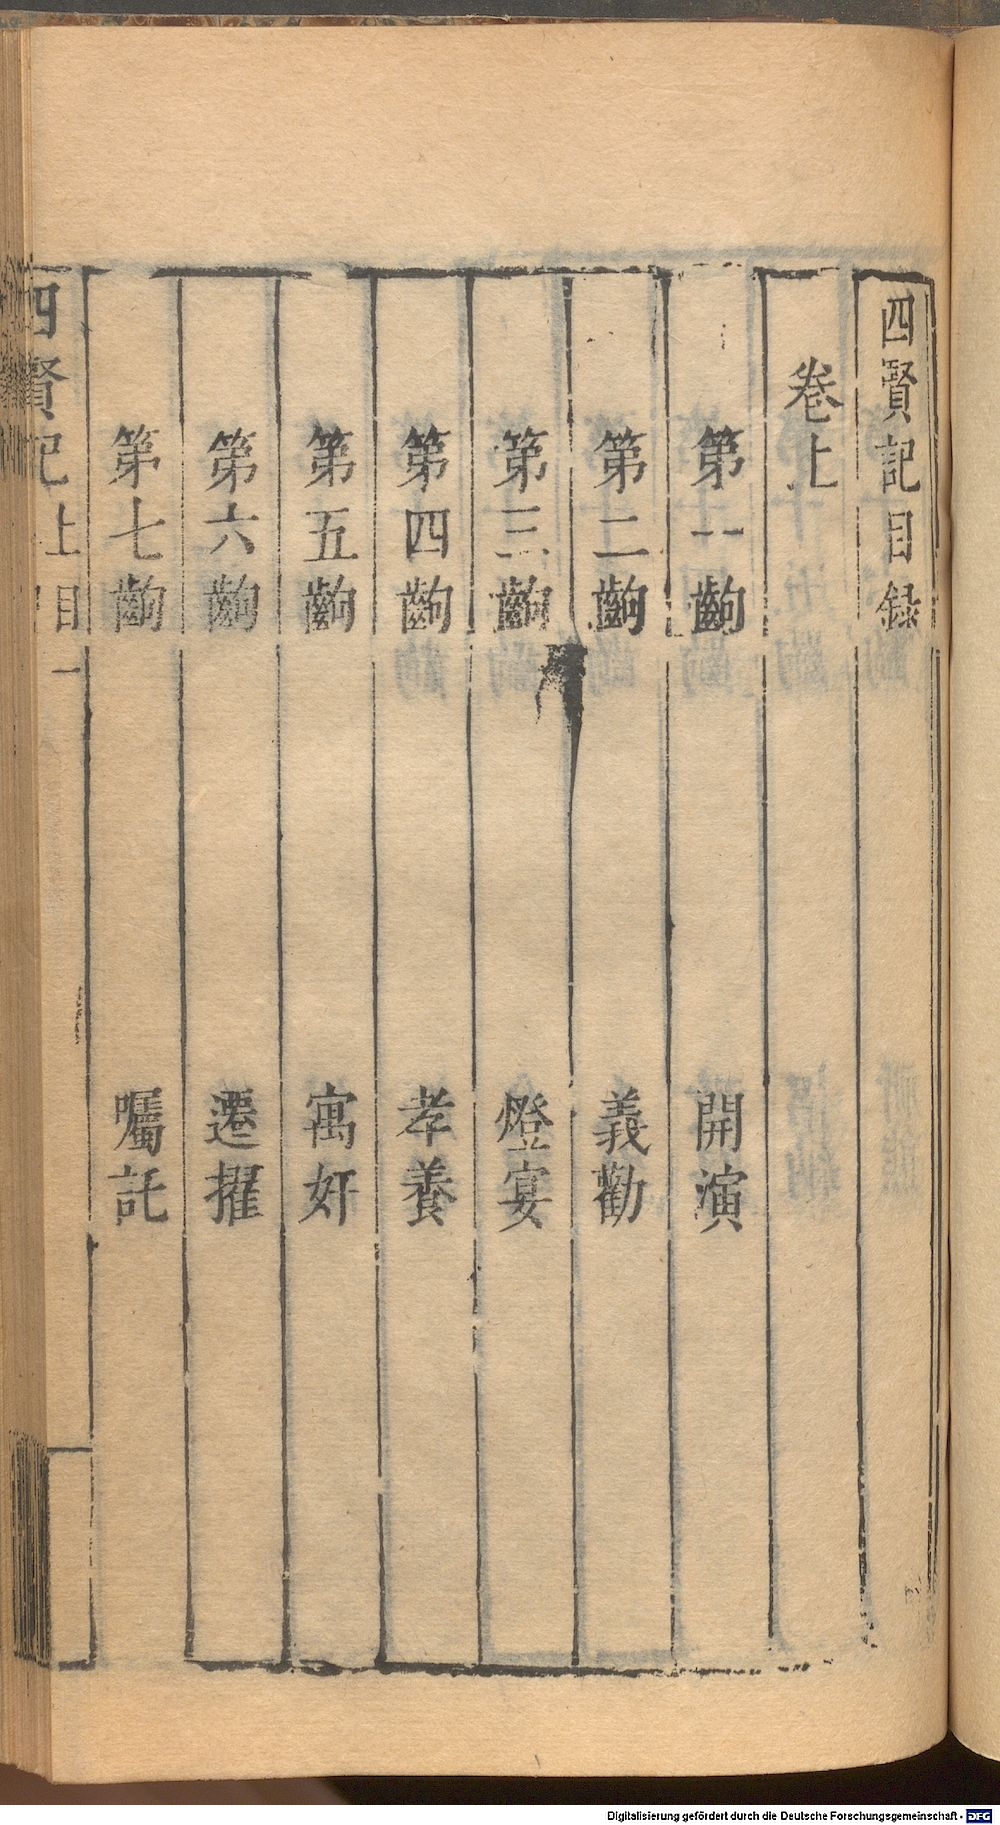 四賢記目錄
卷上
第一齣 開演
第二齣 義勸
第三齣 燈宴
第四齣 孝養
第五齣 寓奸
第六齣 遷擢
第七齣 囑託
四賢記上目一
Digitalisierung gefördert durch die Deutsche Forschungsgemeinschaft - DFG